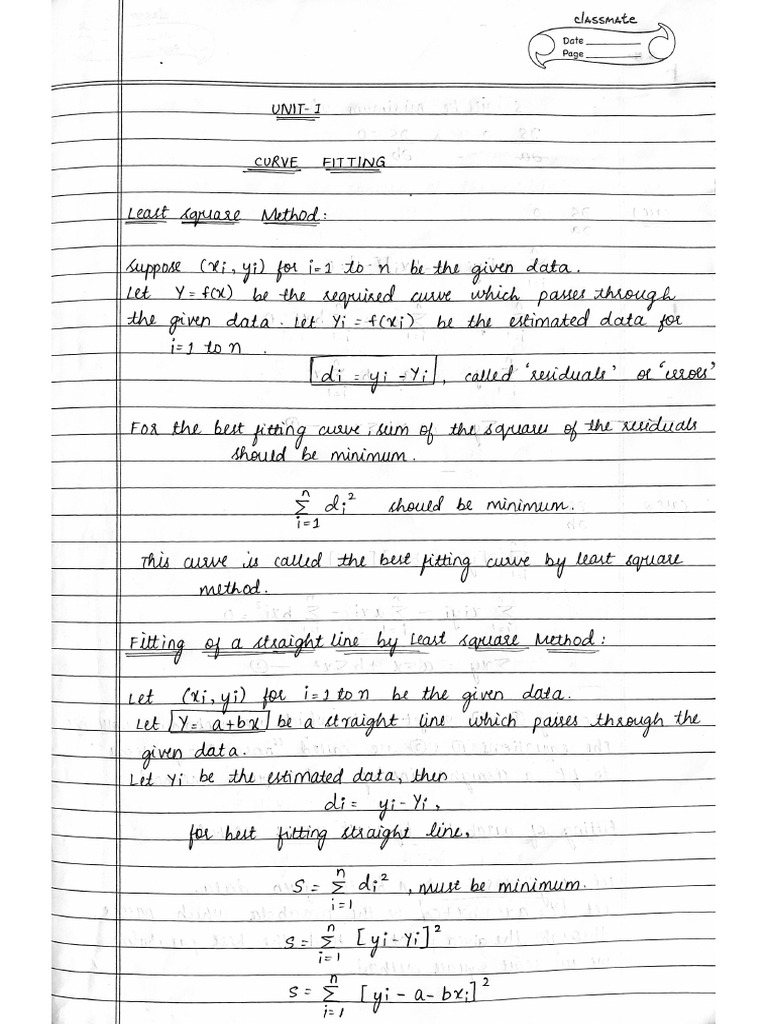 classmate
Date
Page
UNIT-I
CURVE FITTING
Least Square Method:
Suppose (xi, yi) for i=1 to n be the given data.
Let Y=f(x) be the required curve which passes through
the given data. Let Yi=f(xi) be the estimated data for
i=1 to n.
di = yi - Yi, called 'residuals' or 'errors'
For the best fitting curve, sum of the squares of the residuals
should be minimum.
n
Σ di² should be minimum.
i=1
This curve is called the best fitting curve by least square
method.
Fitting of a straight line by Least Square Method:
Let (xi, yi) for i=1 to n be the given data.
Let Y= a+bx be a straight line which passes through the
given data.
Let Yi be the estimated data, then
di= yi-Yi,
for best fitting straight line,
n
S = Σ di², must be minimum.
i=1
n
S = Σ [yi-Yi]²
i=1
n
S = Σ [yi - a - bxi]²
i=1